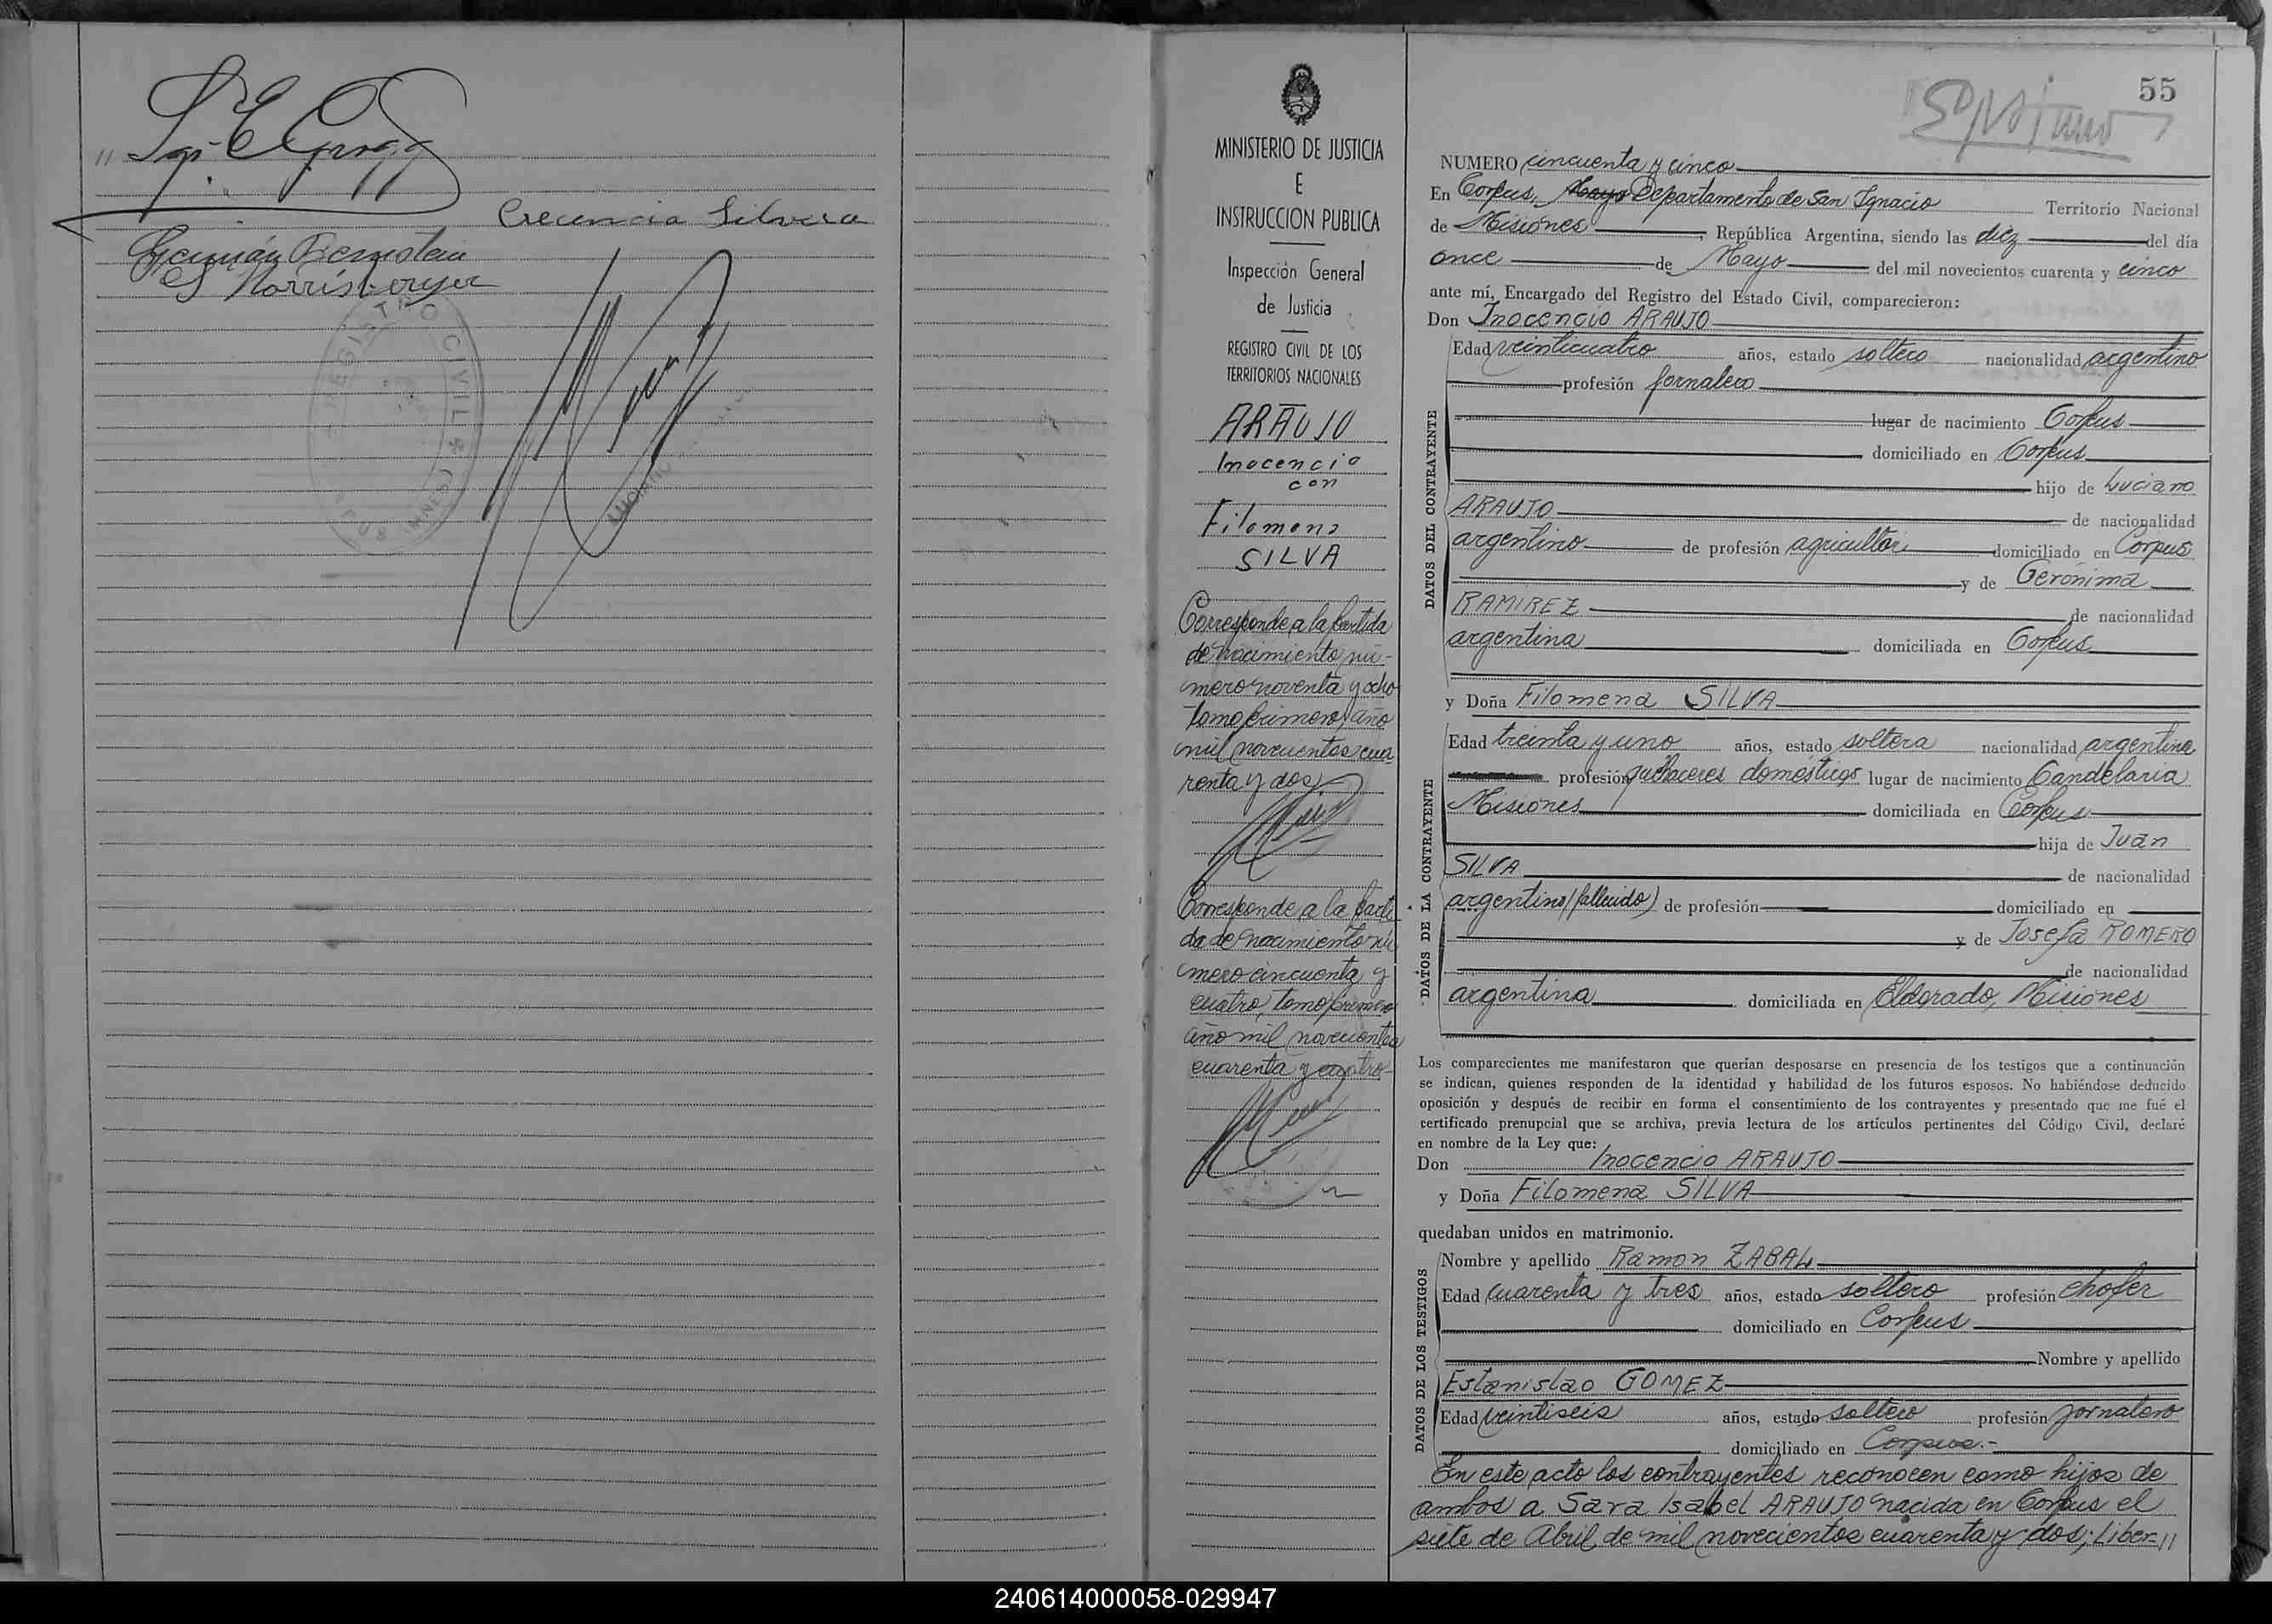 Crecencia Silvera
Germán Bernstein
REGISTRO CIVIL
55
MINISTERIO DE JUSTICIA
E
INSTRUCCION PUBLICA
Inspección General
de Justicia
REGISTRO CIVIL DE LOS
TERRITORIOS NACIONALES
ARAUJO
Inocencio
con
Filomena
SILVA
Corresponde a la partida
de nacimiento nú-
mero noventa y ocho
tomo primero, año
mil novecientos cua
renta y dos
Corresponde a la parti
da de nacimiento nú
mero cincuenta y
cuatro, tomo primero
año mil novecientos
cuarenta y cuatro-
NUMERO cincuenta y cinco
En Corpus, Departamento de San Ignacio Territorio Nacional
de Misiones, República Argentina, siendo las diez del día
once de Mayo del mil novecientos cuarenta y cinco
ante mí, Encargado del Registro del Estado Civil, comparecieron:
Don Inocencio ARAUJO
DATOS DEL CONTRAYENTE
Edad veinticuatro años, estado soltero nacionalidad argentino
profesión jornalero
lugar de nacimiento Corpus
domiciliado en Corpus
hijo de Luciano
ARAUJO de nacionalidad
argentino de profesión agricultor domiciliado en Corpus
y de Gerónima
RAMIREZ de nacionalidad
argentina domiciliada en Corpus
y Doña Filomena SILVA
DATOS DE LA CONTRAYENTE
Edad treinta y uno años, estado soltera nacionalidad argentina
profesión quehaceres domésticos lugar de nacimiento Candelaria
Misiones domiciliada en Corpus
hija de Juan
SILVA de nacionalidad
argentino (fallecido) de profesión domiciliado en
y de Josefa ROMERO
de nacionalidad
argentina domiciliada en Eldorado, Misiones
Los comparecientes me manifestaron que querían desposarse en presencia de los testigos que a continuación
se indican, quienes responden de la identidad y habilidad de los futuros esposos. No habiéndose deducido
oposición y después de recibir en forma el consentimiento de los contrayentes y presentado que me fué el
certificado prenupcial que se archiva, previa lectura de los artículos pertinentes del Código Civil, declaré
en nombre de la Ley que:
Don Inocencio ARAUJO
y Doña Filomena SILVA
quedaban unidos en matrimonio.
DATOS DE LOS TESTIGOS
Nombre y apellido Ramon ZABAL
Edad cuarenta y tres años, estado soltero profesión chofer
domiciliado en Corpus
Nombre y apellido
Estanislao GOMEZ
Edad veintiseis años, estado soltero profesión jornalero
domiciliado en Corpus.-
En este acto los contrayentes reconocen como hijos de
ambos a Sara Isabel ARAUJO nacida en Corpus el
siete de Abril de mil novecientos cuarenta y dos; Liber-//
240614000058-029947